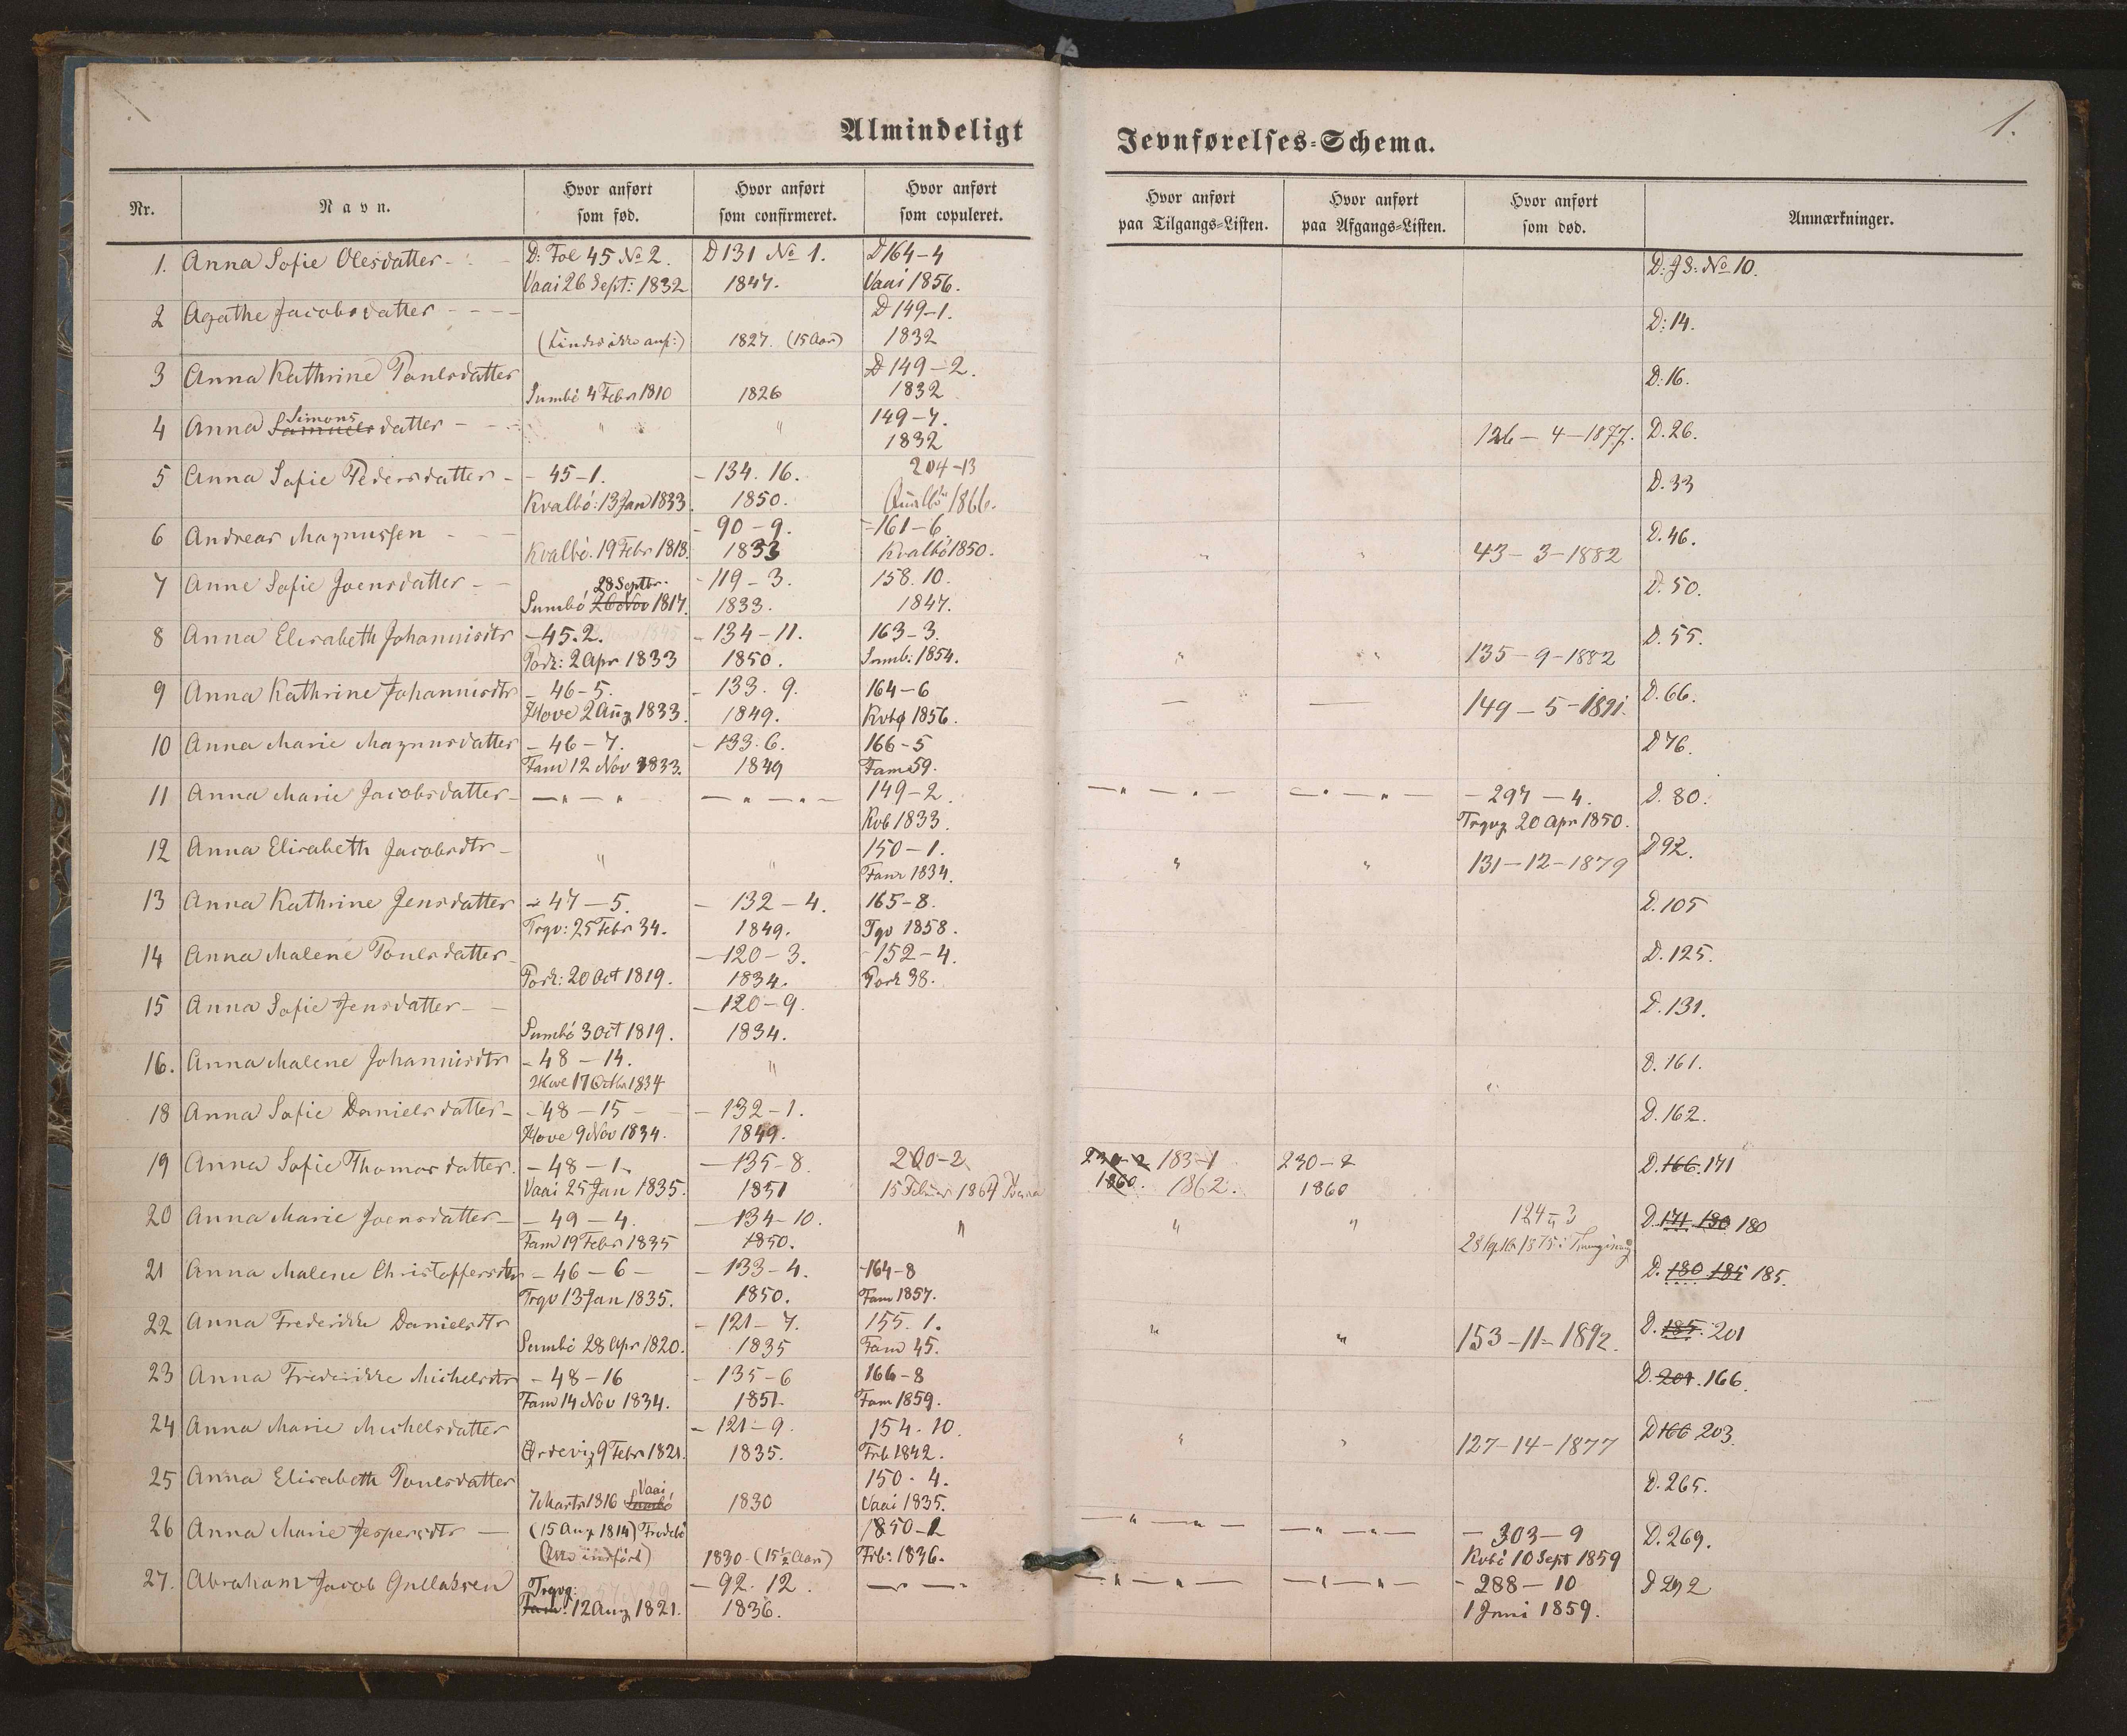 1.
Almindeligt Jevnførelses-Schema.
Nr. Navn. Hvor anført som fød. Hvor anført som confirmeret. Hvor anført som copuleret. Hvor anført paa Tilgangs-Listen. Hvor anført paa Afgangs-Listen. Hvor anført som død. Anmærkninger.
1. Anna Sofie Olesdatter - - D: Fol 45 No 2. D 131 No 1. D 164-4 D: J S: No 10.
Vaai 26 Sept: 1832 1847. Vaai 1856.
2 Agathe Jacobsdatter - - - - D 149-1. D: 14.
(findes ikke anf:) 1827. (15 Aar) 1832
3 Anna Kathrine Poulsdatter D 149-2. D: 16.
Sumbö 4 Febr 1810 1826 1832
4 Anna Simons Samuels datter - - - " " 149-7. 126-4-1877. D. 26.
1832
5 Anna Sofie Pedersdatter - - 45-1. - 134. 16. 204-13 D. 33
Kvalbö: 13 Jan 1833. 1850. 1866.
6 Andreas Magnussen - - - - 90-9. - 161-6 " " 43-3-1882 D. 46.
Kvalbö. 19 Febr 1818. 1833 Kvalbö 1850.
7 Anne Sofie Joensdatter - - 28 Septbr. - 119-3. 158. 10. D. 50.
Sumbö 26 Nov 1817. 1833. 1847.
8 Anna Elisabeth Johannisdtr - 45. 2. - 134-11. 163-3. " " 135-9-1882 D. 55.
Pork: 2 Apr 1833 1850. Sumb: 1854.
9 Anna Kathrine Johannisdtr - 46-5. - 133. 9. 164-6 — — 149-5-1891. D. 66.
Hove 2 Aug 1833. 1849. Kvbø 1856.
10 Anna Marie Magnusdatter - 46-7. - 133. 6. 166-5 D 76.
Fam 12 Nov 1833. 1849 Fam 59.
11 Anna Marie Jacobsdatter - — " — " — " — " — 149-2. — " — " — — " — " — - 297-4. D. 80.
Kvb 1833. Trgvg 20 Apr 1850.
12 Anna Elisabeth Jacobsdtr - " " 150-1. " " 131-12-1879 D 92.
Famr 1834.
13 Anna Kathrine Jensdatter - 47-5. - 132-4. 165-8. D. 105
Trgv: 25 Febr 34. 1849. Tgv 1858.
14 Anna Malene Poulsdatter - - 120-3. - 152-4. D. 125.
Pork: 20 Oct 1819. 1834. Pork 38.
15 Anna Sofie Jensdatter - - - 120-9. D. 131.
Sumbö 3 Oct 1819. 1834.
16. Anna Malene Johannisdtr - 48-14. " " D. 161.
Hove 17 Octbr 1834
18 Anna Sofie Danielsdatter - - 48-15 - - 132-1. D. 162.
Hove 9 Nov 1834. 1849.
19 Anna Sofie Thomasdatter. - 48-1. - 135-8. 200-2 230-2 183-1 230-2 D. 166. 171
Vaai 25 Jan 1835. 1851 15 Februar 1864 1860. 1862. 1860
20 Anna Marie Joensdatter - - 49-4. - 134-10. " " " 124-3 D. 171 180 180
Fam 19 Febr 1835 1850. 1875
21 Anna Malene Christoffersdtr - 46-6 - - 133-4. - 164-8 D. 180 185 185.
Trgv 13 Jan 1835. 1850. Fam 1857.
22 Anna Frederikke Danielsdtr - 121-7. 155. 1. " " 153-11-1892. D. 185. 201
Sumbö 28 Apr 1820. 1835 Fam 45.
23 Anna Frederikke Michelsdtr - 48-16 - 135-6 166-8 D. 201. 166.
Fam 14 Nov 1834. 1851. Fam 1859.
24 Anna Marie Michelsdatter - 121-9. 154. 10. " " 127-14-1877 D 166 203.
Ørdevig 9 Febr 1821. 1835. Frb 1842.
25 Anna Elisabeth Poulsdatter Vaai 150. 4. D. 265.
7 Marts 1816 Sumbö 1830 Vaai 1835.
26 Anna Marie Jespersdtr — (15 Aug 1814) Frodebö 1850-2 — " — " — — " — " — - 303-9 D. 269.
(ikke indført) 1830 - (15½ Aar) Frb: 1836. Kvbö 10 Sept 1859
27. Abraham Jacob Gullaksen Trgvg: - 92. 12. — " — — " — " — — " — " — - 288-10 D 292
Fam: 12 Aug 1821. 1836. 1 Juni 1859.